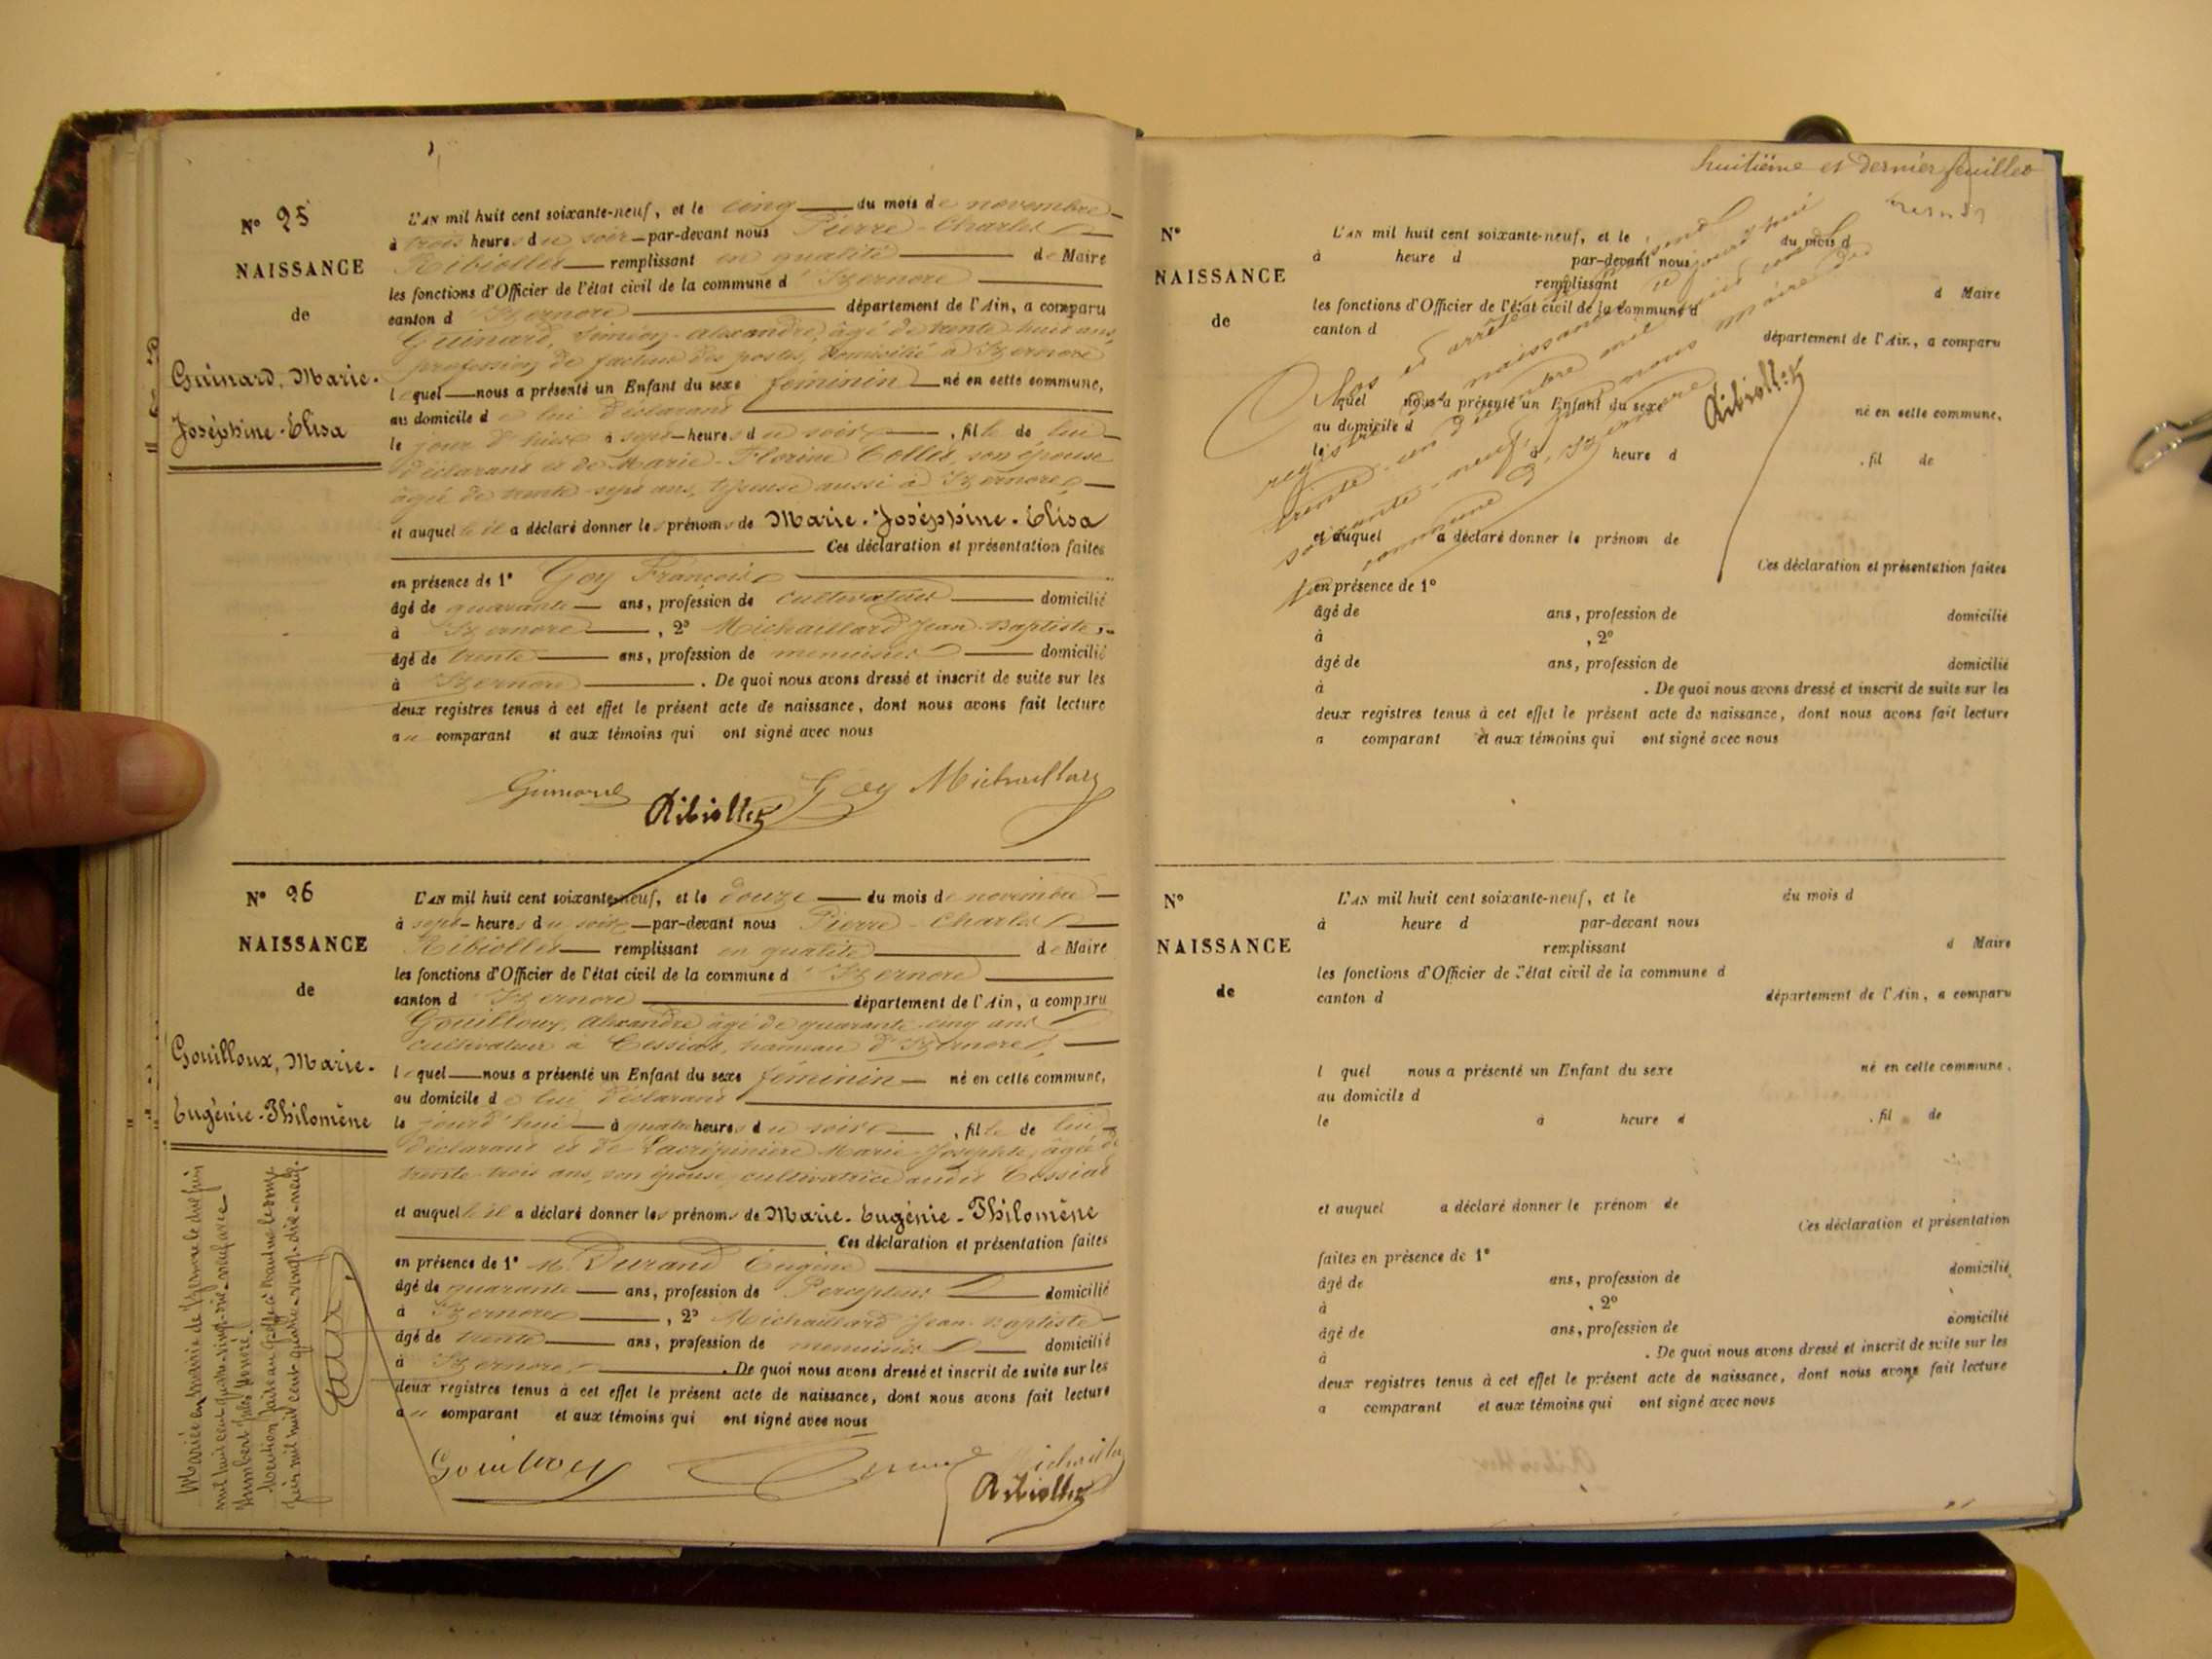 Nº 25
NAISSANCE
de
Guinard, Marie-
Joséphine-Elisa
L'AN mil huit cent soixante-neuf, et le cinq du mois de novembre
à trois heures du soir par-devant nous Pierre-Charles
Ribiollet remplissant en qualité de Maire
les fonctions d'Officier de l'état civil de la commune d'Izernore
canton d'Izernore département de l'Ain, a comparu
Guinard, Siméon-Alexandre, âgé de trente-huit ans,
profession de facteur des postes, domicilié à Izernore
lequel nous a présenté un Enfant du sexe féminin né en cette commune,
au domicile de lui déclarant
le jour d'hier à sept heures du soir, fille de lui
déclarant et de Marie-Florine Collet, son épouse
âgée de trente-sept ans, aussi à Izernore,
et auquel il a déclaré donner les prénoms de Marie-Joséphine-Elisa
Ces déclaration et présentation faites
en présence de 1º Goy François
âgé de quarante ans, profession de cultivateur domicilié
à Izernore, 2º Michaillard Jean-Baptiste,
âgé de trente ans, profession de menuisier domicilié
à Izernore. De quoi nous avons dressé et inscrit de suite sur les
deux registres tenus à cet effet le présent acte de naissance, dont nous avons fait lecture
au comparant et aux témoins qui ont signé avec nous
Guinard Goy Michaillard
Ribiollet
Nº 26
NAISSANCE
de
Gouilloux, Marie-
Eugénie-Philomène
L'AN mil huit cent soixante-neuf, et le douze du mois de novembre
à sept heures du soir par-devant nous Pierre-Charles
Ribiollet remplissant en qualité de Maire
les fonctions d'Officier de l'état civil de la commune d'Izernore
canton d'Izernore département de l'Ain, a comparu
Gouilloux, Alexandre âgé de quarante-cinq ans
cultivateur à Cessiat, hameau d'Izernore,
lequel nous a présenté un Enfant du sexe féminin né en cette commune,
au domicile de lui déclarant
le jourd'hui à quatre heures du soir, fille de lui
déclarant et de Lacrépinière Marie-Josephte, âgée de
trente-trois ans, son épouse, cultivatrice audit Cessiat
et auquel il a déclaré donner les prénoms de Marie-Eugénie-Philomène
Ces déclaration et présentation faites
en présence de 1º M. Durand Eugène
âgé de quarante ans, profession de Percepteur domicilié
à Izernore, 2º Michaillard Jean-Baptiste
âgé de trente ans, profession de menuisier domicilié
à Izernore. De quoi nous avons dressé et inscrit de suite sur les
deux registres tenus à cet effet le présent acte de naissance, dont nous avons fait lecture
au comparant et aux témoins qui ont signé avec nous
Gouilloux Michaillard
Ribiollet
Mariée en mairie de Izernore le dix juin
mil huit cent quatre-vingt-dix-neuf avec
Humbert Jules Honoré.
Mention faite au greffe à Nantua le
juin mil huit cent quatre-vingt-dix-neuf.
huitième et dernier feuillet
Nº
NAISSANCE
de
L'AN mil huit cent soixante-neuf, et le du mois d
à heure d par-devant nous
remplissant d Maire
les fonctions d'Officier de l'état civil de la commune d
canton d département de l'Ain, a comparu
l quel nous a présenté un Enfant du sexe né en cette commune,
au domicile d
le à heure d , fil de
et auquel a déclaré donner le prénom de
Ces déclaration et présentation faites
en présence de 1º
âgé de ans, profession de domicilié
à , 2º
âgé de ans, profession de domicilié
à . De quoi nous avons dressé et inscrit de suite sur les
deux registres tenus à cet effet le présent acte de naissance, dont nous avons fait lecture
a comparant et aux témoins qui ont signé avec nous
Clos et arrêté le présent
registre naissances ce jourd'hui
trente-un décembre mil huit cent
soixante-neuf par nous maire de
commune d'Izernore
Ribiollet
Nº
NAISSANCE
de
L'AN mil huit cent soixante-neuf, et le du mois d
à heure d par-devant nous
remplissant d Maire
les fonctions d'Officier de l'état civil de la commune d
canton d département de l'Ain, a comparu
l quel nous a présenté un Enfant du sexe né en cette commune,
au domicile d
le à heure d , fil de
et auquel a déclaré donner le prénom de
Ces déclaration et présentation
faites en présence de 1º
âgé de ans, profession de domicilié
à , 2º
âgé de ans, profession de domicilié
à . De quoi nous avons dressé et inscrit de suite sur les
deux registres tenus à cet effet le présent acte de naissance, dont nous avons fait lecture
a comparant et aux témoins qui ont signé avec nous